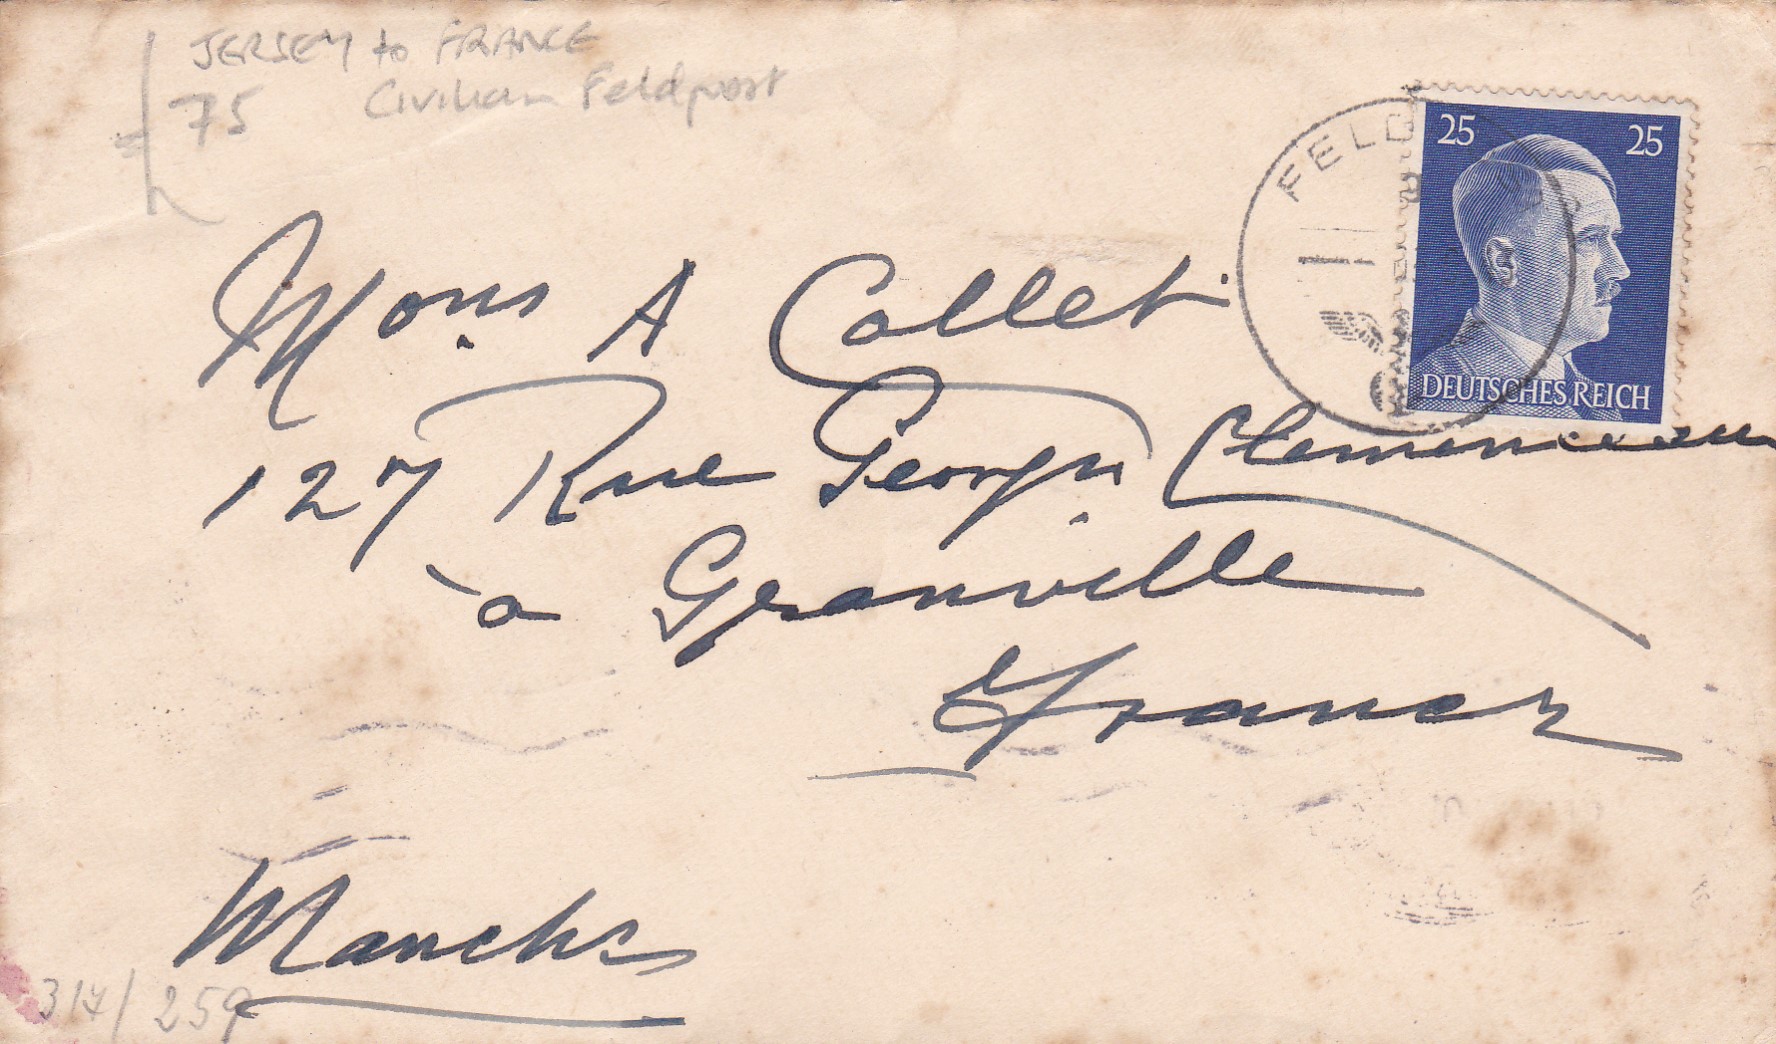 JERSEY to FRANCE
75 Civilian Feldpost
FELD
25 25
DEUTSCHES REICH
Mons A Collet
127 Rue Georges Clemenceau
à Granville
France
Manche
317/259